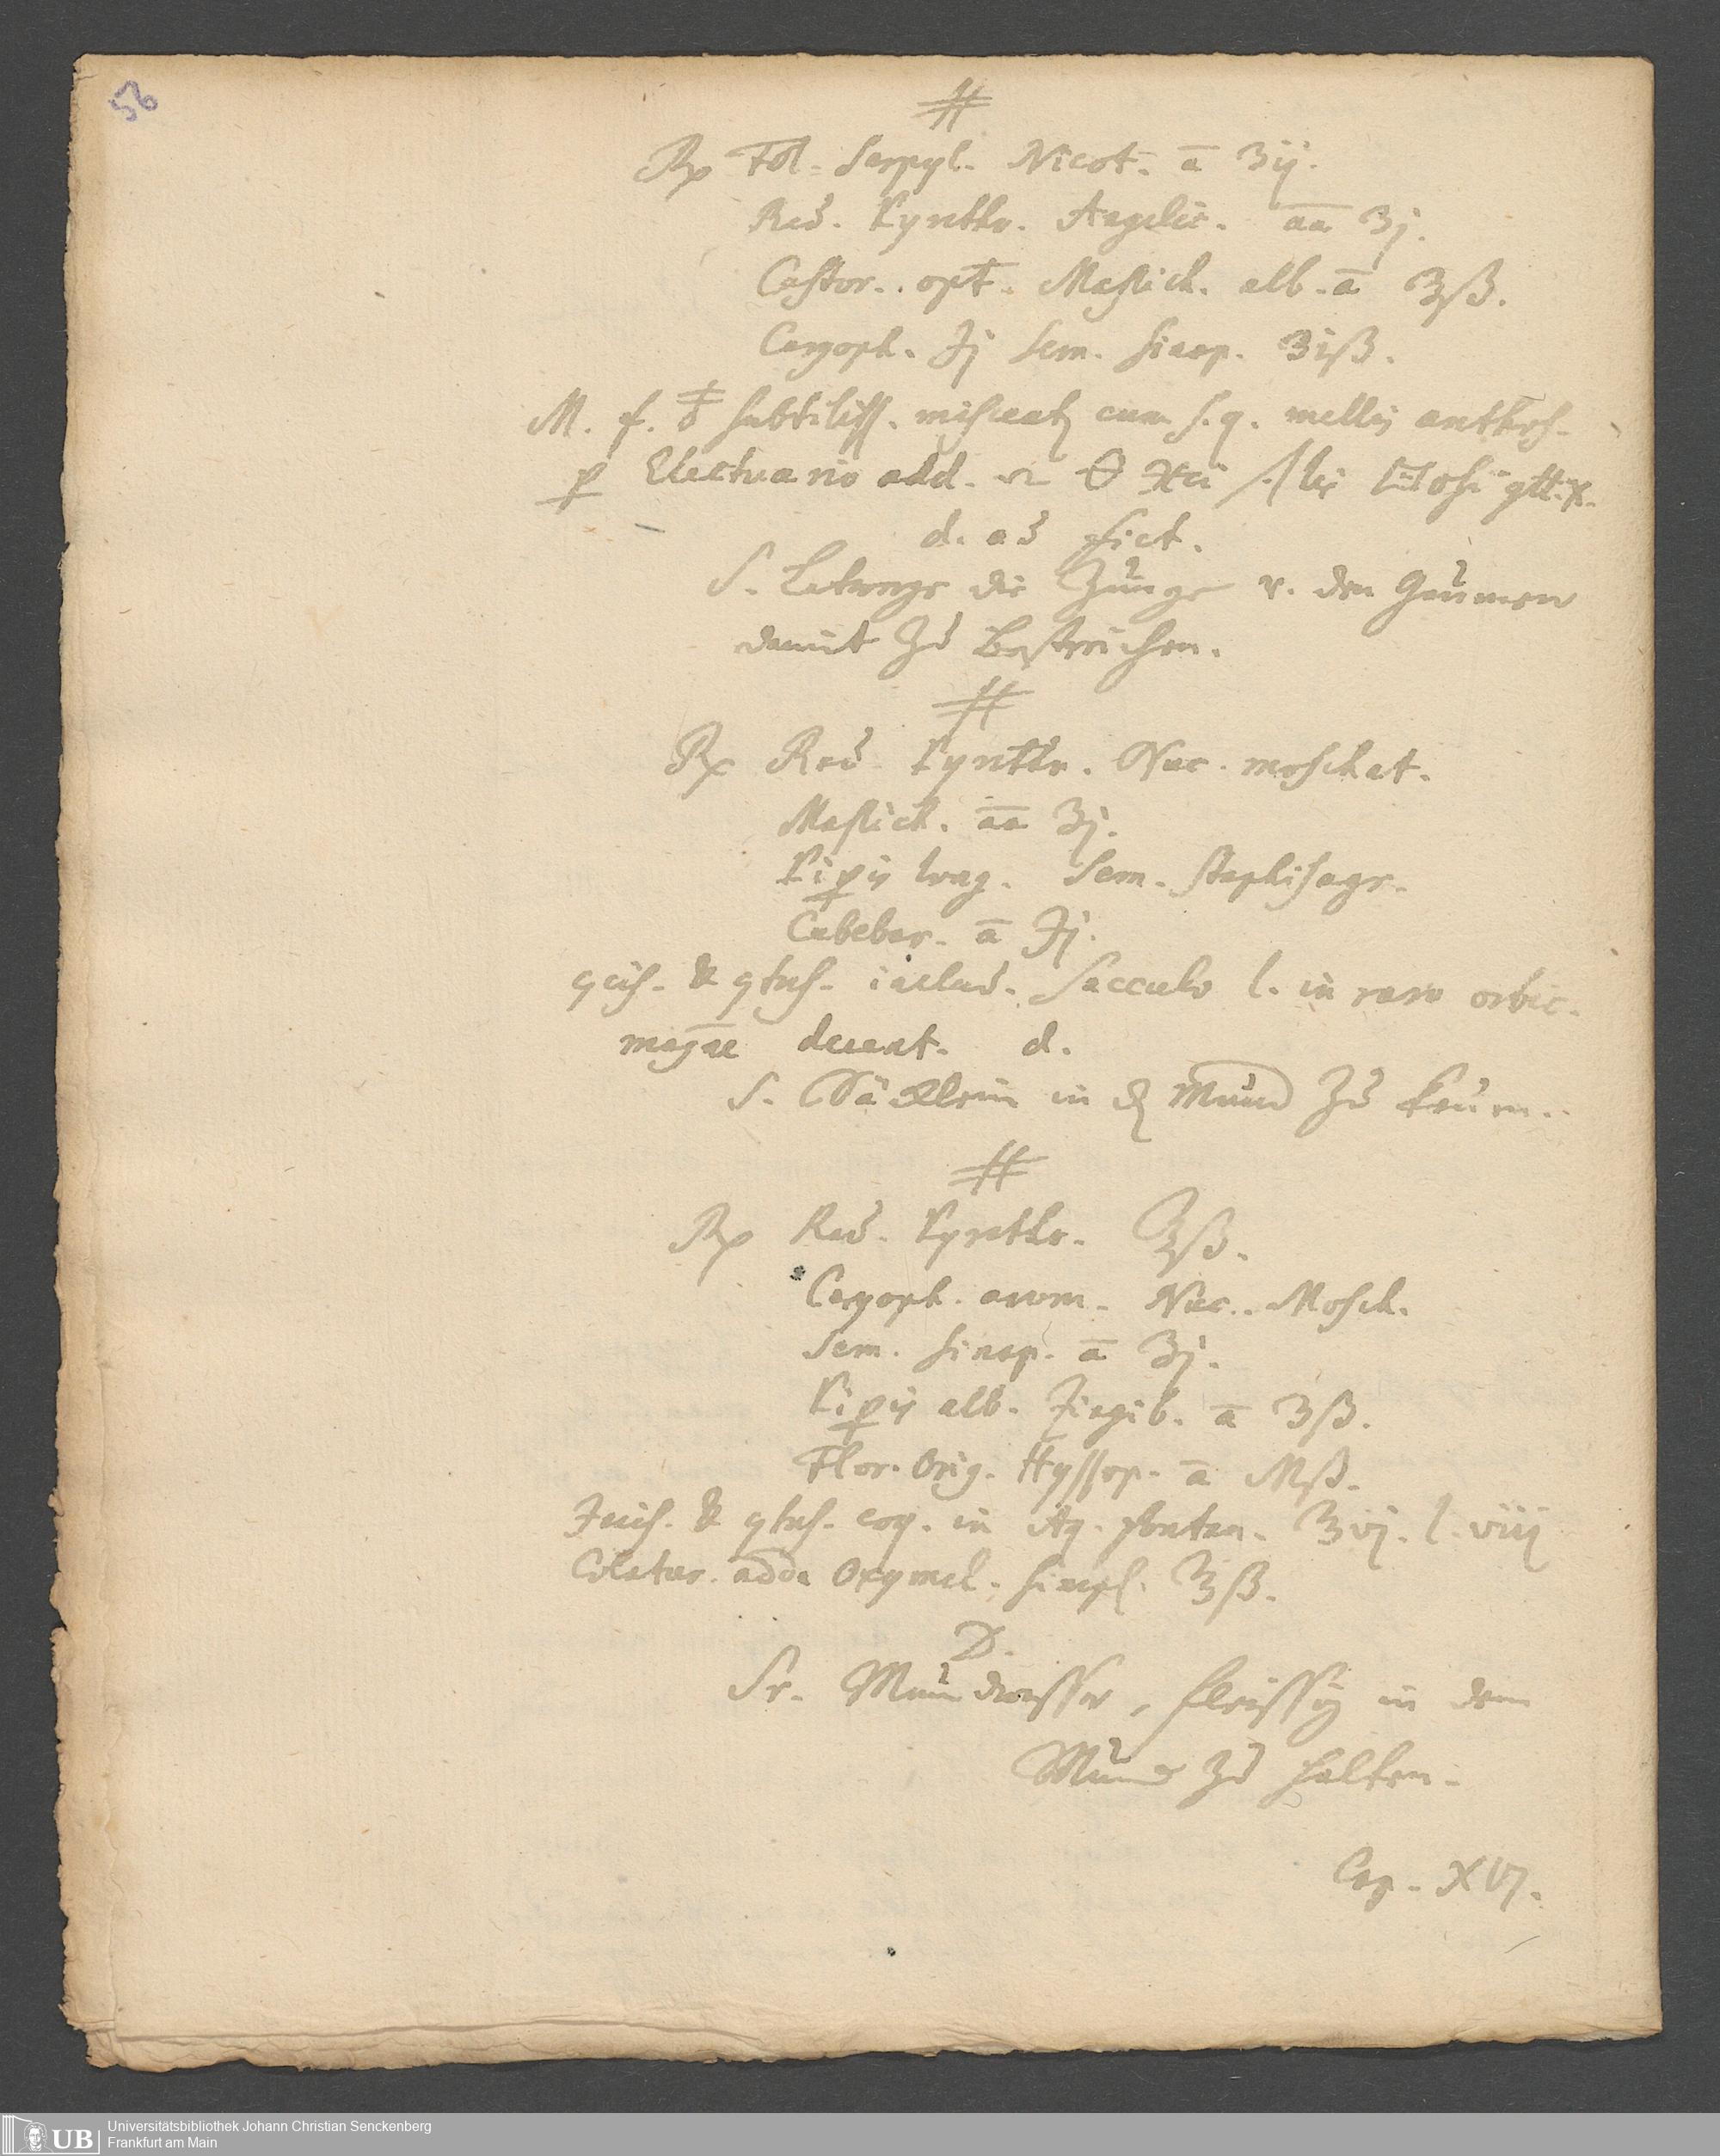 56
#
Rp Fol. Serpyl. Nicot. ā ʒij.
Rad. Pyrethr. Angelic. āā ʒj.
Castor. opt. Mastich. alb. ā ʒß.
Caryoph. ℈j Sem. Sinap. ʒiß.
M. f. subtiliss. misceatur cum s. q. mellis anthos.
Electuario add.
d. ad fict.
S. Latwerge die Zunge u. den Gaumen
damit zu bestreichen.
#
Rp Rad. Pyrethr. Nuc. moschat.
Mastich. āā ʒj.
Piperis long. Sem. Staphisagr.
Cubebar. ā ℈j.
gcis. & gtus. includ. Sacculo l. in raro orbic.
magne deceat. d.
S. Säcklein in den Mund zu keuen.
#
Rp Rad. Pyrethr. ℥ß.
Caryoph. arom. Nuc. Mosch.
Sem. Sinap. ā ʒj.
Piperis alb. Zingib. ā ʒß.
Flor. Orig. Hyssop. ā Mß.
Incis. & gtus. coq. in Aq. fontan. ℥vj. l. viij
Colatur. adde Oxymel. simpl. ℥ß.
D.
Sr. Mundwasser, fleissig in dem
Mund zu halten.
Cap. XVI.
UB Universitätsbibliothek Johann Christian Senckenberg
Frankfurt am Main